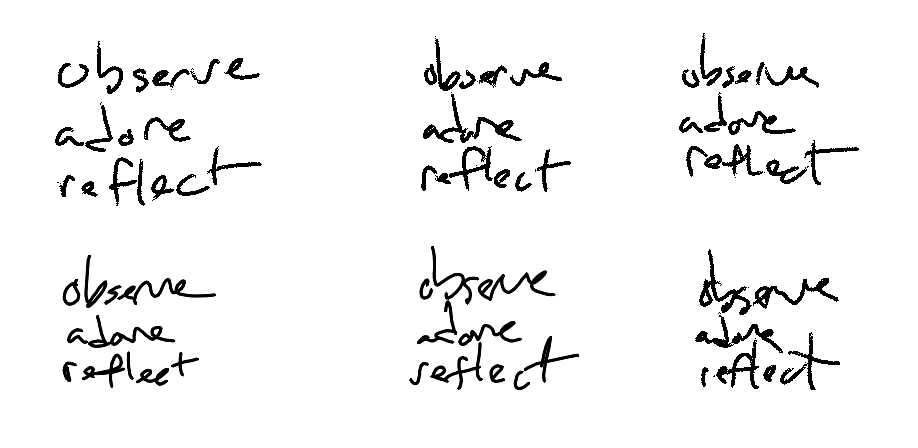 observe
adore
reflect
observe
adore
reflect
observe
adore
reflect
observe
adore
reflect
observe
adore
reflect
observe
adore
reflect